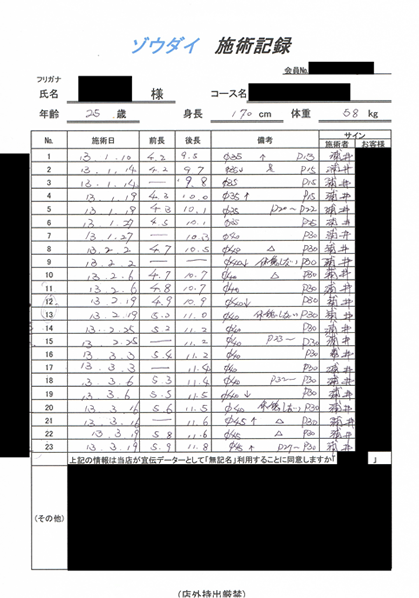 ゾウダイ 施術記録
会員No.
フリガナ
氏名 様 コース名
年齢 25 歳 身長 170 cm 体重 58 kg
No. 施術日 前長 後長 備考 サイン
施術者 お客様
1 13.1.10 4.2 9.5 Φ35 ↑ P15
2 13.1.14 4.2 9.7 P15
3 13.1.14 — 9.8 Φ35 P15
4 13.1.19 4.3 10.0 Φ35 ↑ P15
5 13.1.19 4.3 10.1 Φ35 P20～P22
6 13.1.27 4.5 10.1 P25
7 13.1.27 — 10.3 P30
8 13.2.2 4.7 10.5 Φ40 △ P30
9 13.2.2 — — Φ40↓ P30
10 13.2.6 4.7 10.7 Φ40 △ P30
11 13.2.6 4.8 10.7 Φ40 P30
12 13.2.19 4.9 10.9 Φ40↓ P30
13 13.2.19 5.2 11.0 Φ40 P30
14 13.2.25 5.2 11.2 Φ40 P30
15 13.2.25 — 11.2 Φ40 P30
16 13.3.3 5.4 11.2 Φ40 P30
17 13.3.3 — 11.4 Φ40 P30
18 13.3.6 5.3 11.4 Φ40 P32～ P30
19 13.3.6 5.5 11.5 Φ40 ↓ P30
20 13.3.16 5.6 11.5 Φ40 P30
21 13.3.16 — 11.6 Φ45 ↑ △ P30
22 13.3.19 5.8 11.6 Φ45 △ P30
23 13.3.19 5.9 11.8 Φ45 ↑ P27～ P30
上記の情報は当店が宣伝データーとして「無記名」利用することに同意しますか「 」
(その他)
(店外持出厳禁)